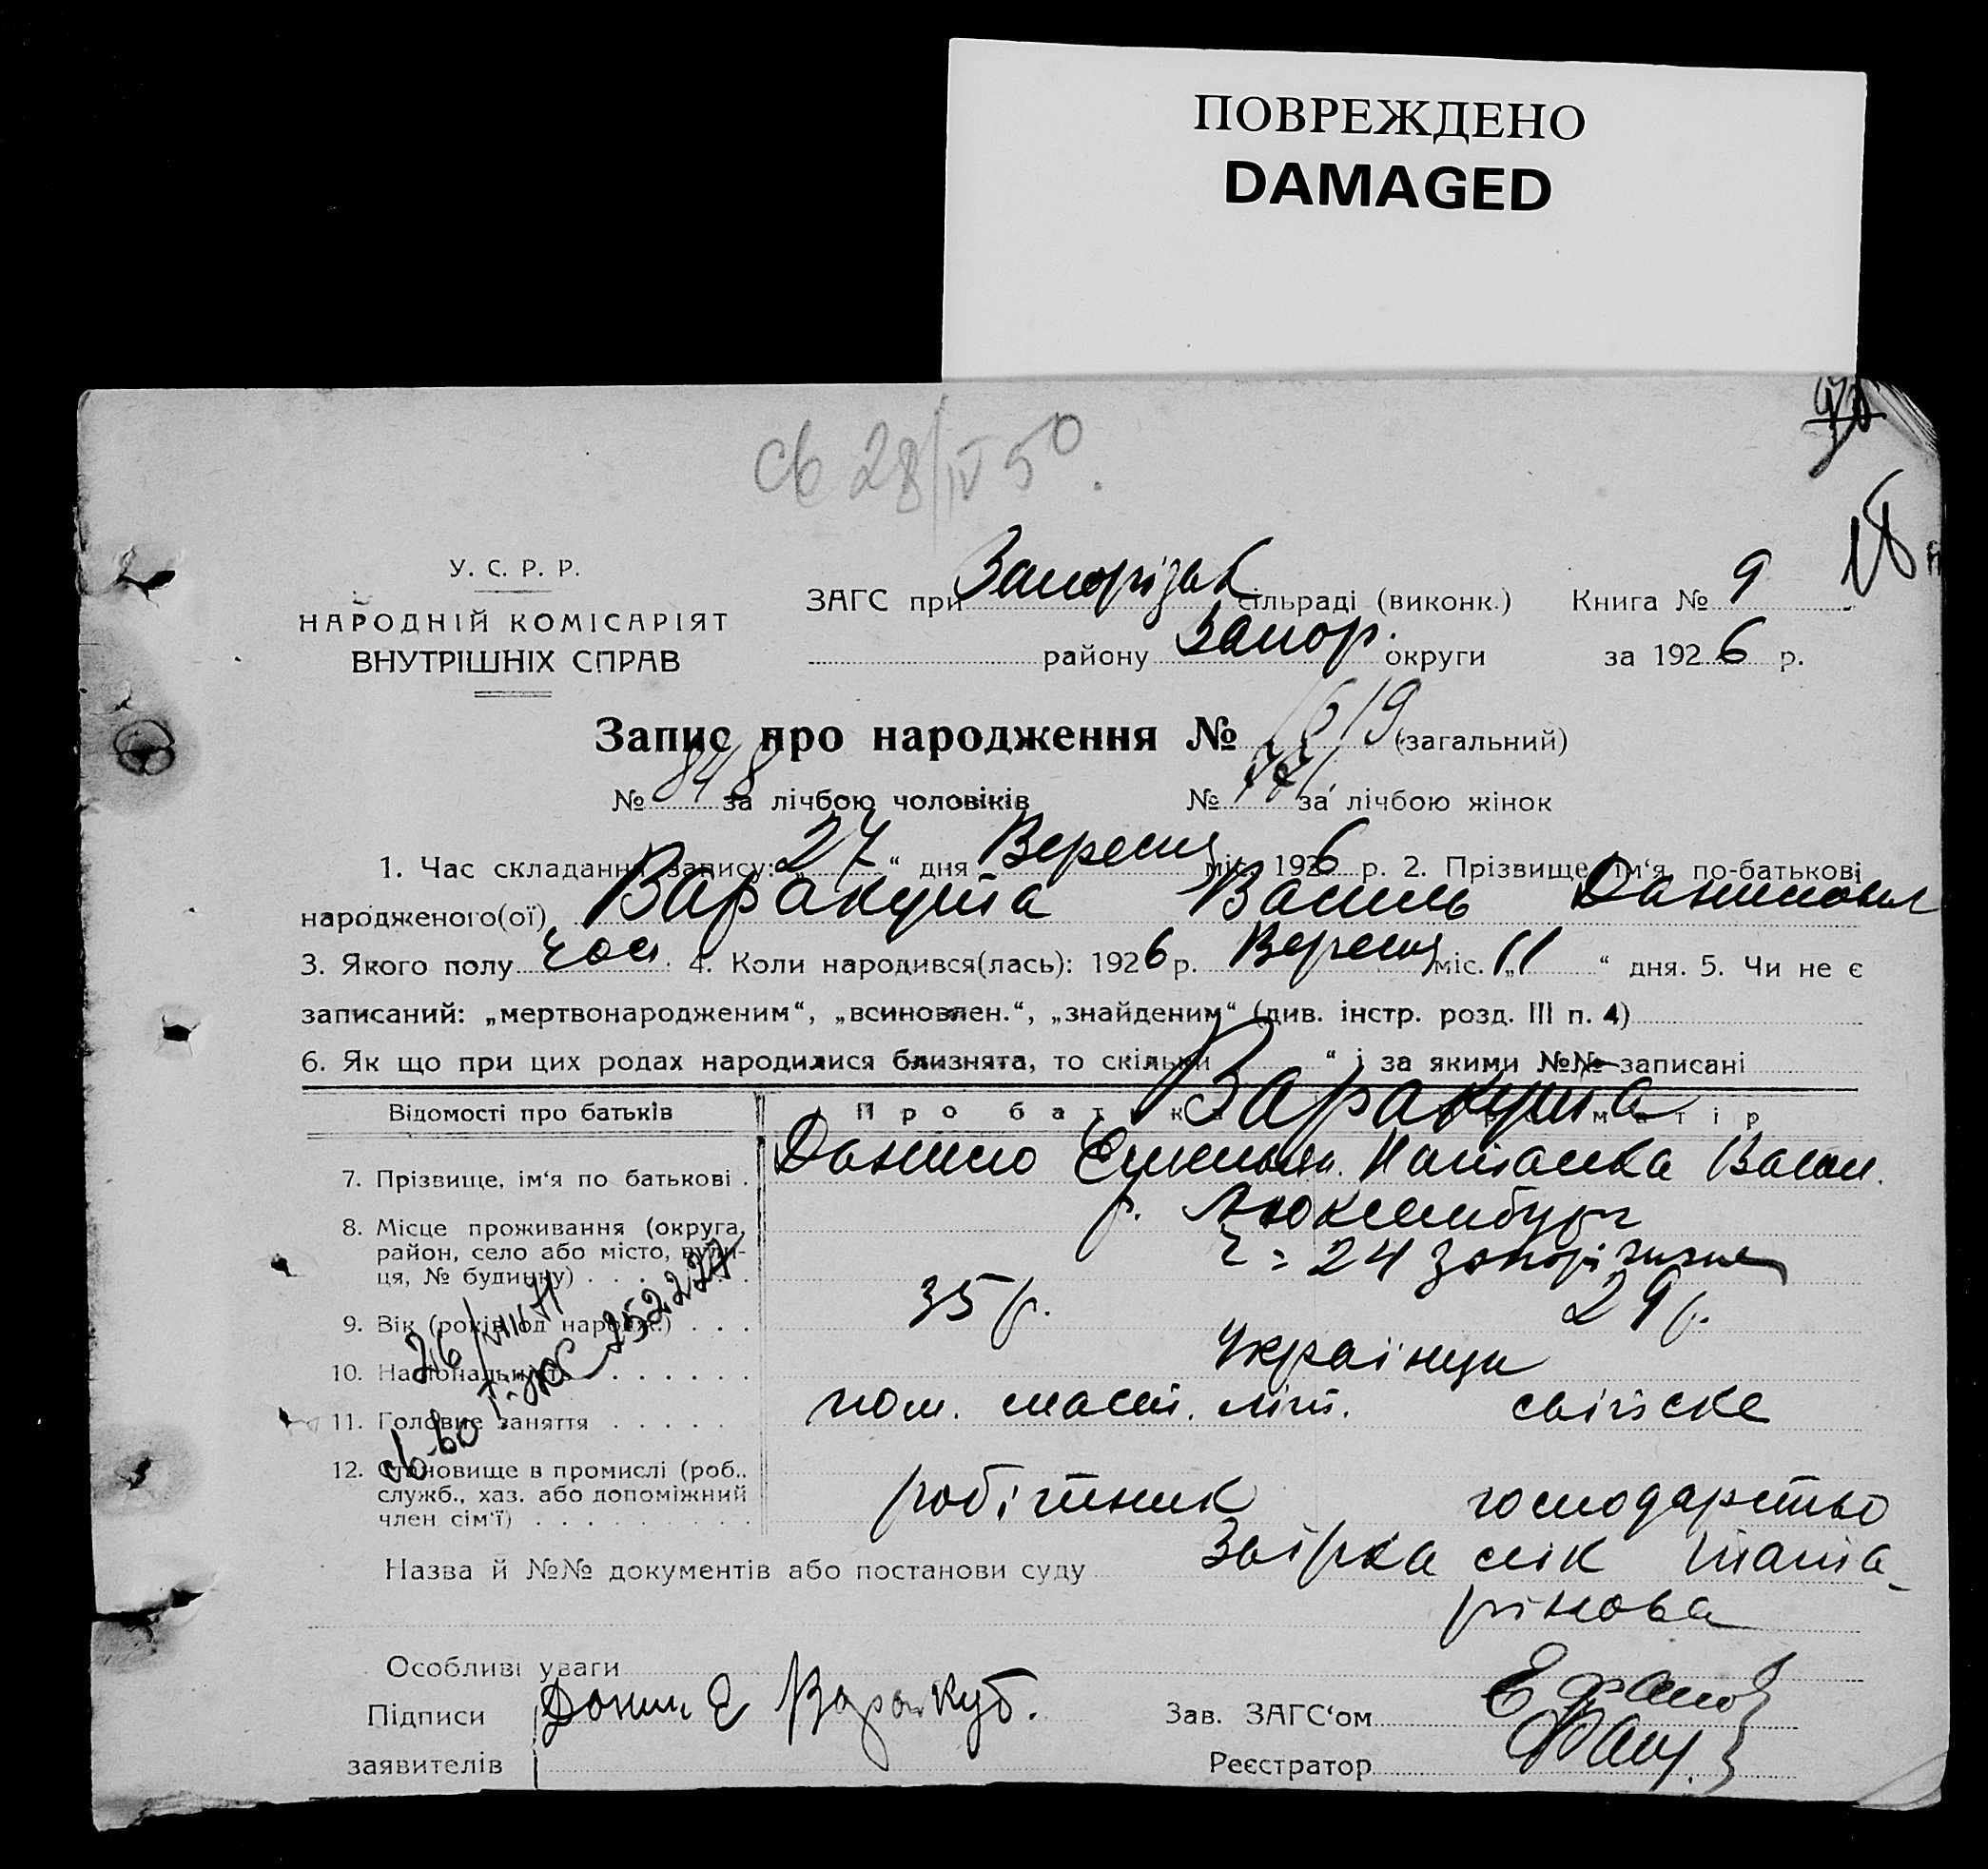 ПОВРЕЖДЕНО
DAMAGED
св 28/IV 50.
У. С. Р. Р.
НАРОДНІЙ КОМІСАРІЯТ
ВНУТРІШНІХ СПРАВ
ЗАГС при Запорізьк сільраді (виконк.) Книга № 9
району Запор. округи за 1926 р.
Запис про народження № 1619 (загальний)
№ 848 за лічбою чоловіків № 771 за лічбою жінок
1. Час складання запису: „27“ дня Вересня міс. 1926 р. 2. Прізвище, ім‘я, по-батькові
народженого(ої) Варакута Василь Данилович
3. Якого полу чол. 4. Коли народився(лась): 1926 р. Вересня міс. „11“ дня. 5. Чи не є
записаний: „мертвонародженим“, „всиновлен.“, „знайденим“ (див. інстр. розд. III п. 4)
6. Як що при цих родах народилися близнята, то скільки “ і за якими №№ записані
Варакута
Відомості про батьків Про батька матір
7. Прізвище, ім‘я по батькові . Данило Наталка Васил.
8. Місце проживання (округа, р. Люксембург
район, село або місто, вули- 24 Запоріжжя
ця, № будинку) . . . . . . .
9. Вік (років од народж.) . . . 35 р. 29 р.
10. Національність . . . . . . . Українци
11. Головне заняття . . . . . пом. маст. літ. свійске
12. Становище в промислі (роб., робітник господарство
служб., хаз. або допоміжний
член сім‘ї) . . . . . . . . .
26/VIII 71
св-во І-ЖС 252227
Назва й №№ документів або постанови суду Звірка лік Тата-
рінова
Особливі уваги
Підписи Данил Е Варакут. Зав. ЗАГС‘ом
заявителів Реєстратор